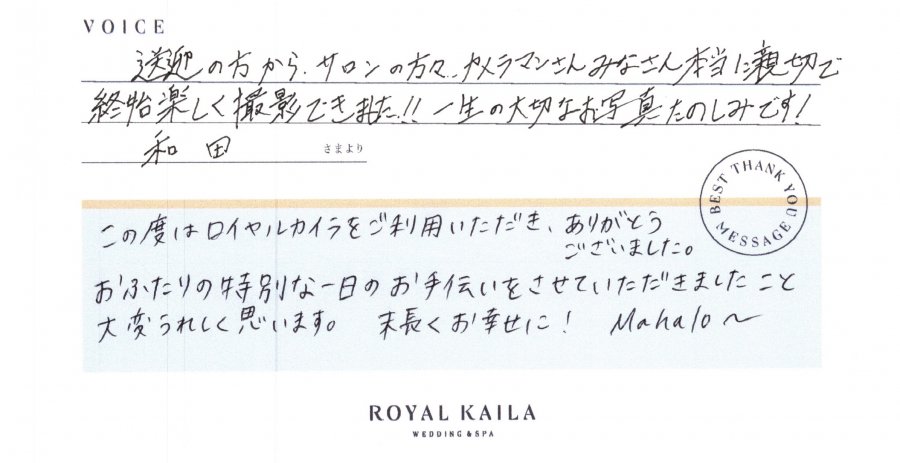 VOICE
送迎の方から、サロンの方々、カメラマンさんみなさん本当に親切で
終始楽しく撮影できました!! 一生の大切なお写真たのしみです!
和田 さまより
BEST THANK YOU MESSAGE
この度はロイヤルカイラをご利用いただき、ありがとう
ございました。
おふたりの特別な一日のお手伝いをさせていただきましたこと
大変うれしく思います。 末長くお幸せに! Mahalo～
ROYAL KAILA
WEDDING & SPA